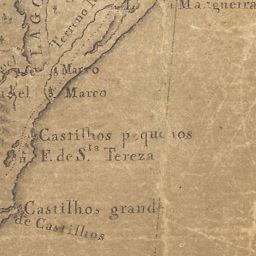 LAGO
Terreno
L. Mangueira
S. Marco
S. Marco
Castilhos pequenos
F. de S.ta Tereza
Castilhos grande
de Castilhos